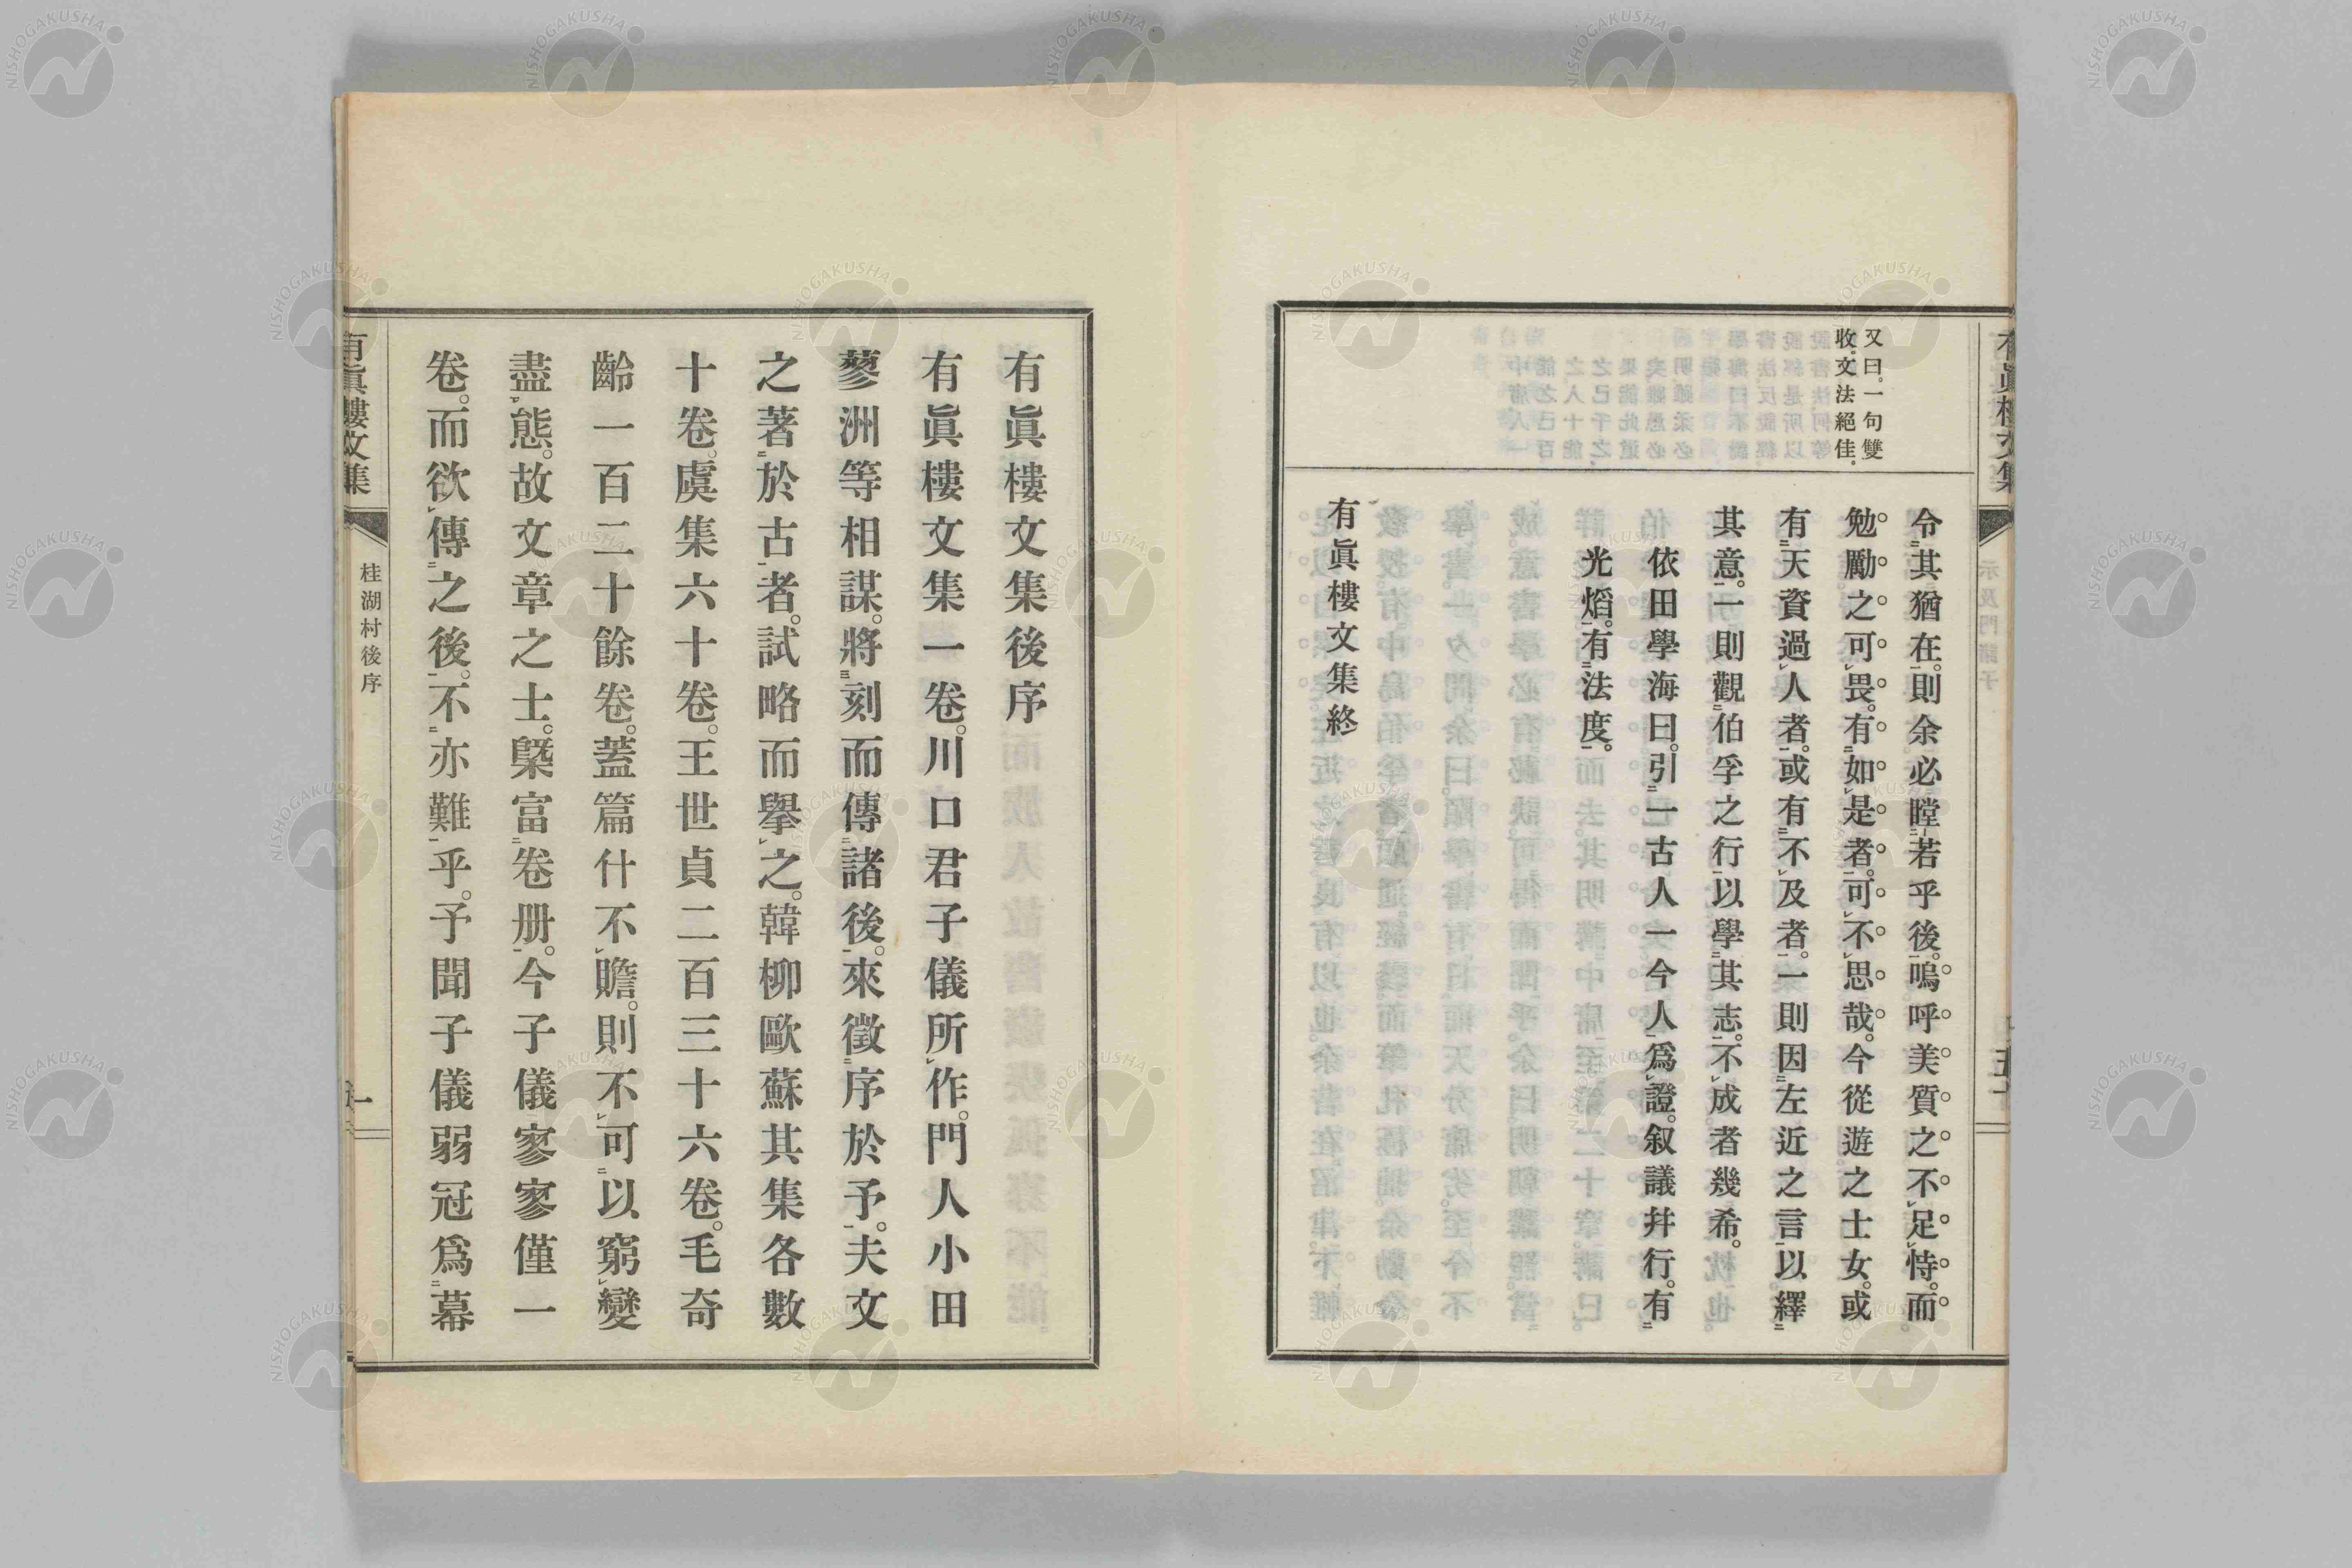 又曰。一句雙
收。文法絕佳。
令其猶在。則余必瞠若乎後。嗚呼美質之不足恃。而
勉勵之可畏。有如是者。可不思哉。今從遊之士女。或
有天資過人者。或有不及者。一則因左近之言以繹
其意。一則觀伯孚之行以學其志。不成者幾希。
依田學海曰。引一古人一今人爲證。叙議幷行。有
光熖。有法度。
有眞樓文集終
有眞樓文集後序
有眞樓文集一卷。川口君子儀所作。門人小田
蓼洲等相謀。將刻而傳諸後。來徵序於予。夫文
之著於古者。試略而擧之。韓柳歐蘇其集各數
十卷。虞集六十卷。王世貞二百三十六卷。毛奇
齡一百二十餘卷。蓋篇什不贍。則不可以窮變
盡態。故文章之士。槩富卷册。今子儀寥寥僅一
卷。而欲傳之後。不亦難乎。予聞子儀弱冠爲幕
有眞樓文集
桂湖村後序
一
NISHOGAKUSHA